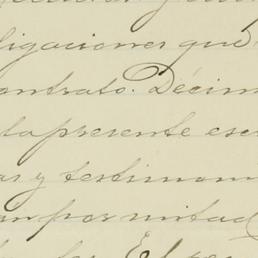 ligaciones que
ontrato. Décim
la presente esc
as y testimon
án por mitad